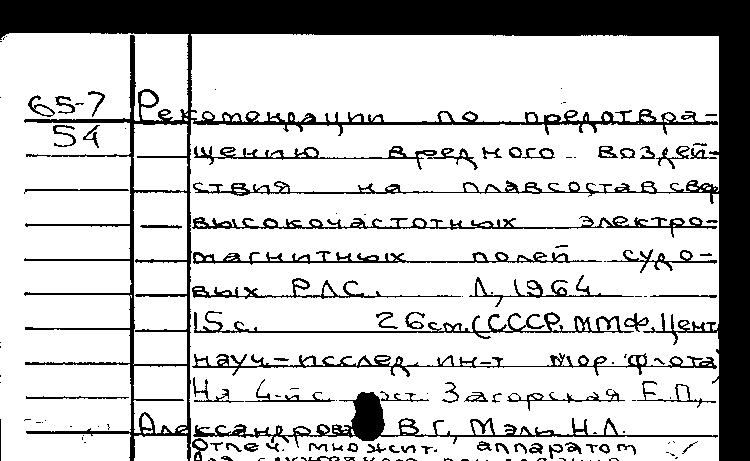 65-7
54
Рекомендации по предотвра-
щению вредного воздей-
ствия на плавсостав свер
высокочастотных электро-
магнитных полей судо-
вых РЛС. Л., 1964.
15 с. 26 см. (СССР. ММФ. Цент
науч-исслед. ин-т мор. флота
На 4-й с сост. Загорская Е.П.,
Александрова В.Г., Мэль Н.Л.
Отпеч. множит. аппаратом